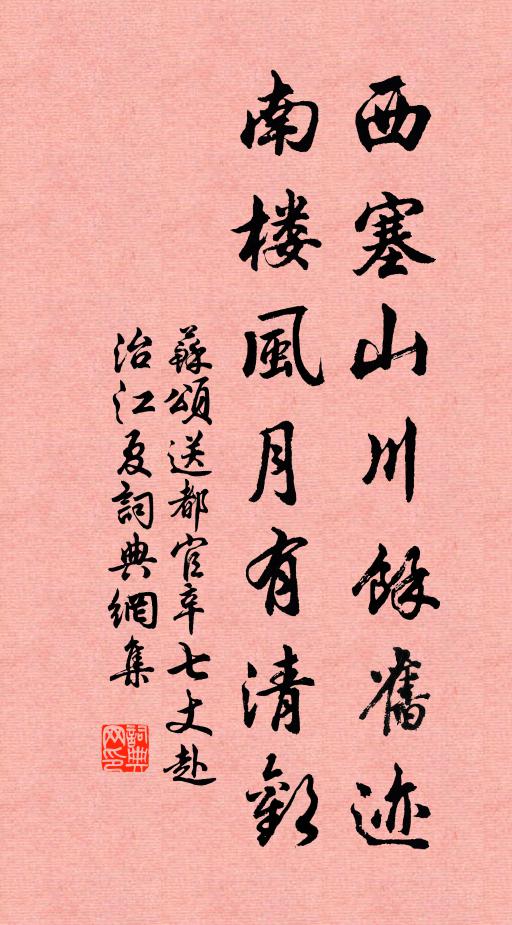 西塞山川餘舊迹
南楼風月有清歡
蘇頌送都官辛七丈赴
治江夏詞典網集
詞典网印